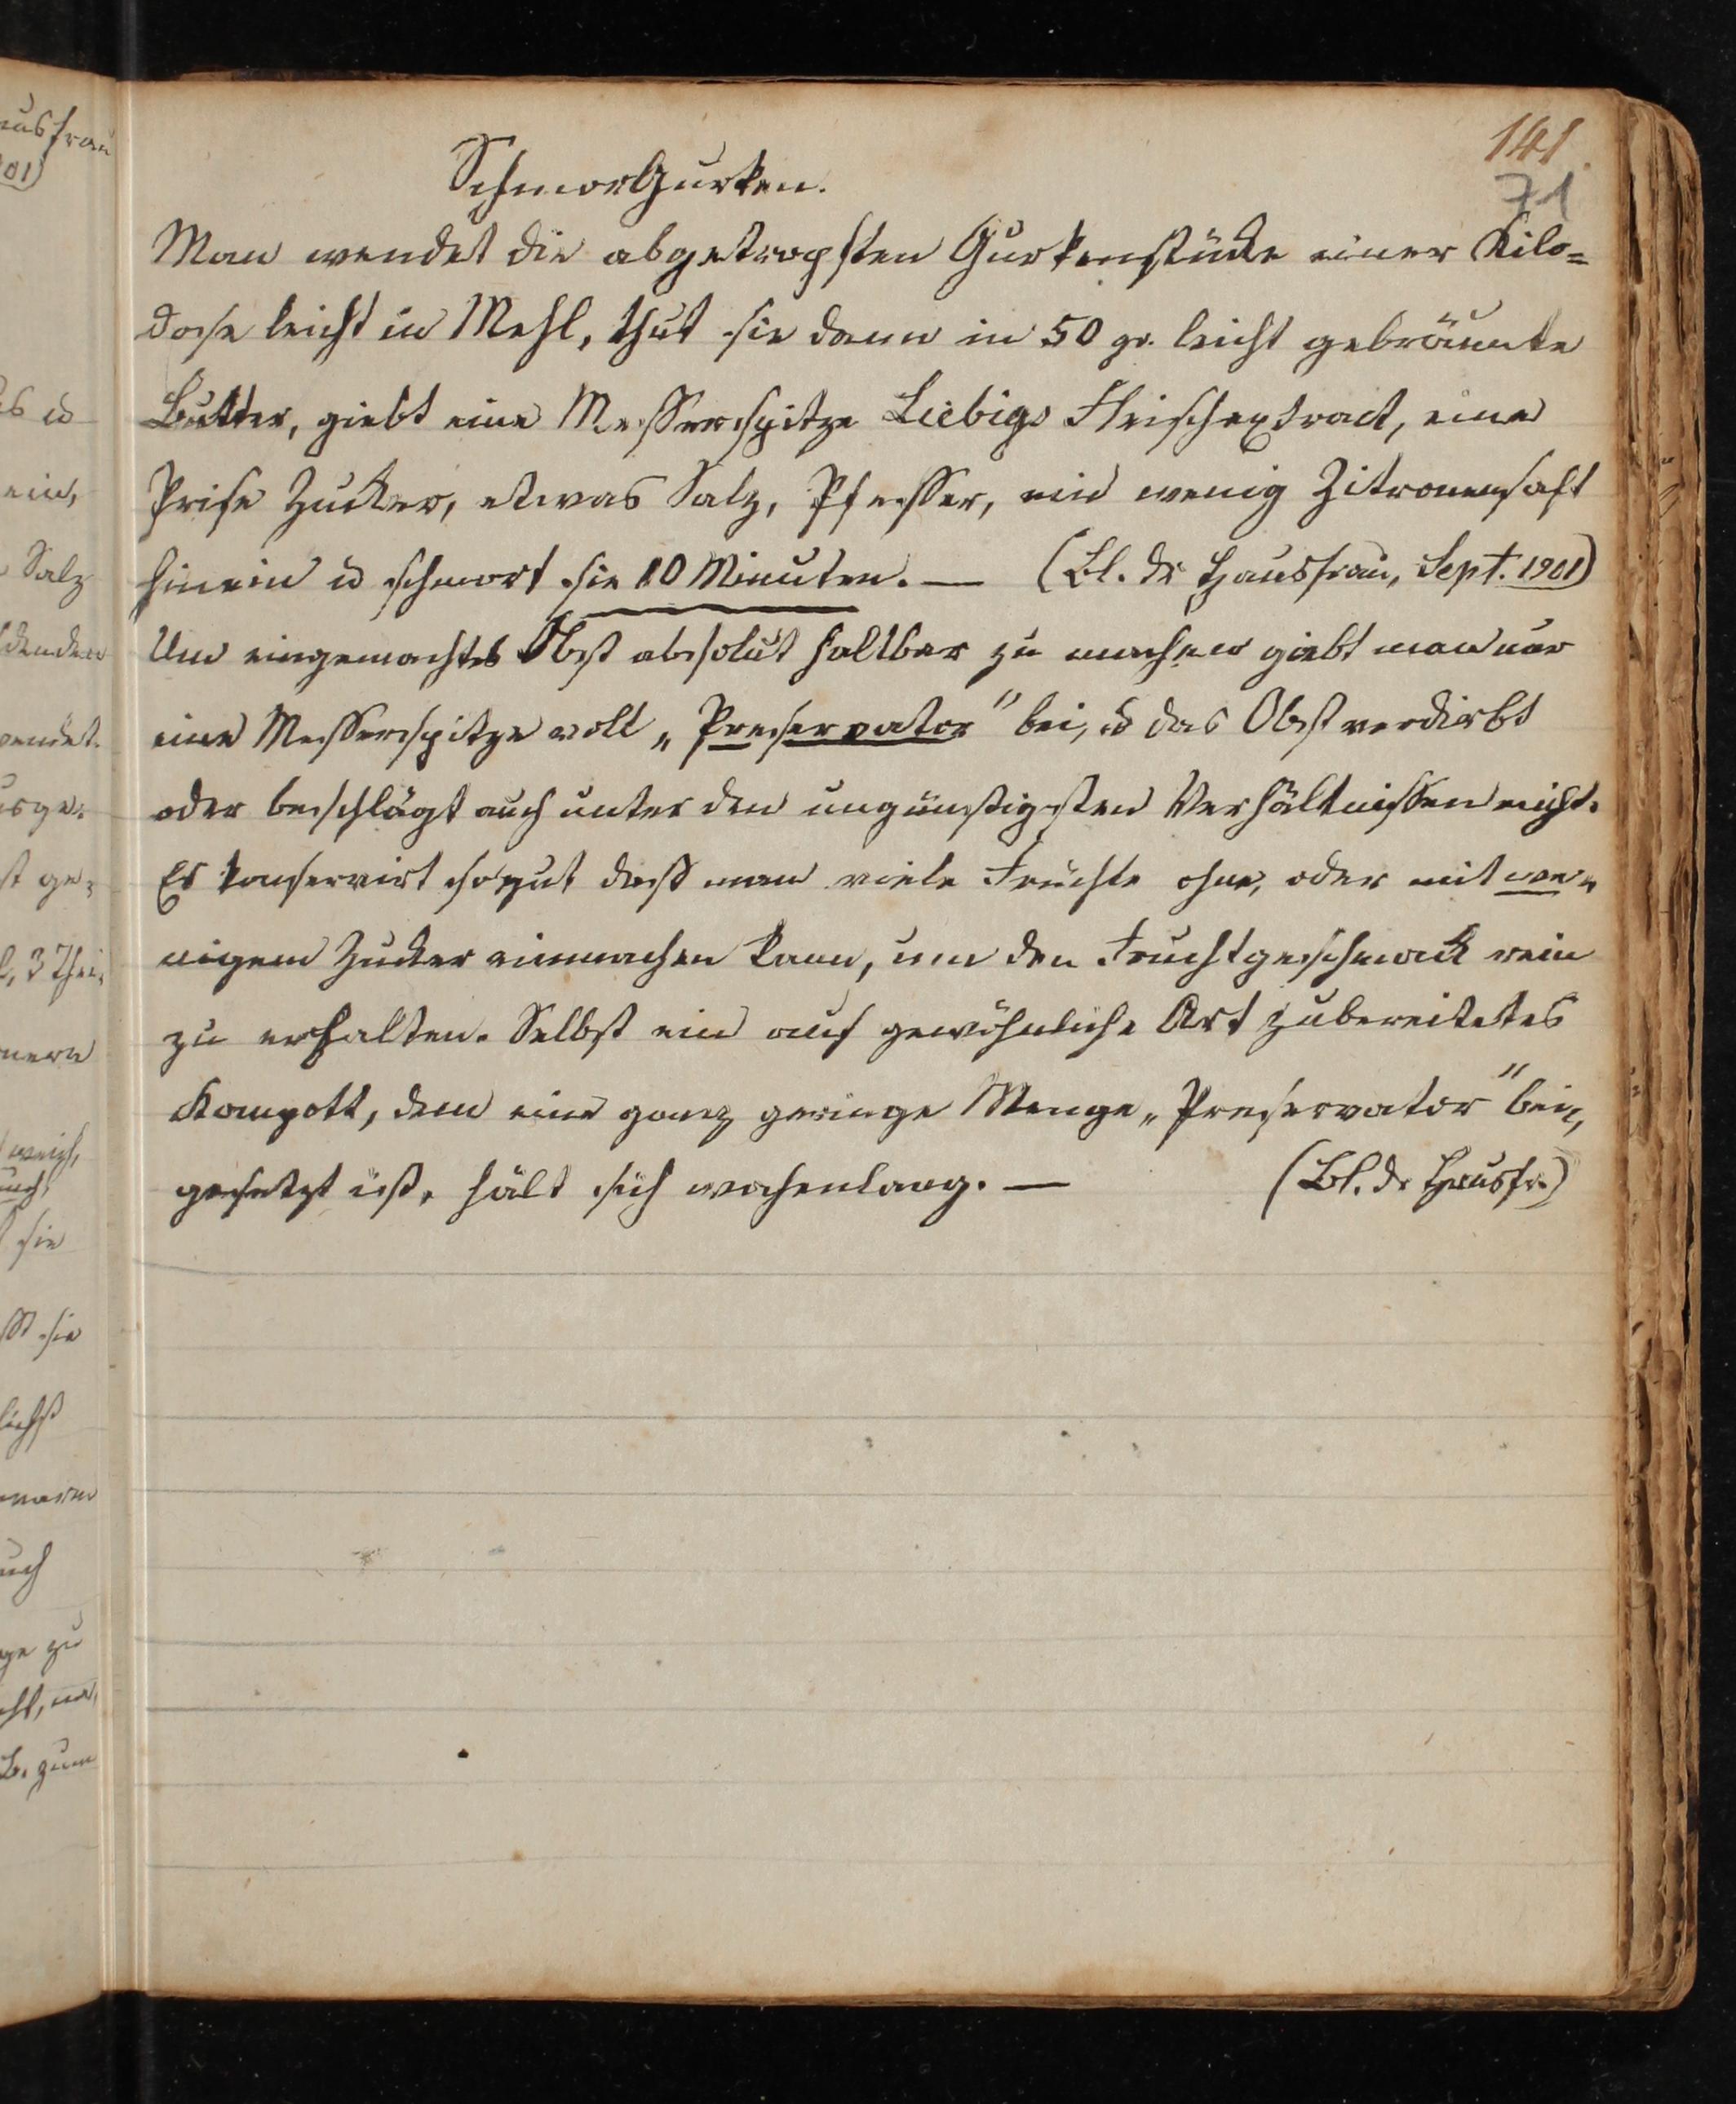 141.
71
SchmorGurken.
Man wendet die abgetropften Gurkenstücke einer Kilo=
dose leicht in Mehl, thut sie dann in 50 gr. leicht gebräunte
Butter, giebt eine Messerspitze Liebigs Fleischextract, eine
Prise Zucker, etwas Salz, Pfeffer, ein wenig Zitronensaft
hinein u schmort sie 10 Minuten. — (Bl. dr Hausfrau, Sept. 1901)
Um eingemachtes Obst absolut haltbar zu machen giebt man nur
eine Messerspitze voll „Preservator" bei, u das Obst verdirbt
oder beschlägt auch unter den ungünstigsten Verhältnissen nicht.
Es konservirt so gut dass man viele Früchte ohne, oder mit we„
nigem Zucker einmachen kann, um den Fruchtgeschmack rein
zu erhalten. Selbst ein auf gewöhnliche Art zubereitetes
Kompott, dem eine ganz geringe Menge „Preservator" bei„
gesetzt ist, hält sich wochenlang. — (Bl. dr Hausfr.)
ausfrau
01)
es u
ein,
Salz
wendet.
ausge„
st ge„
3 Thei„
weich,
sie
sst sie
warm
auch
zu
zum